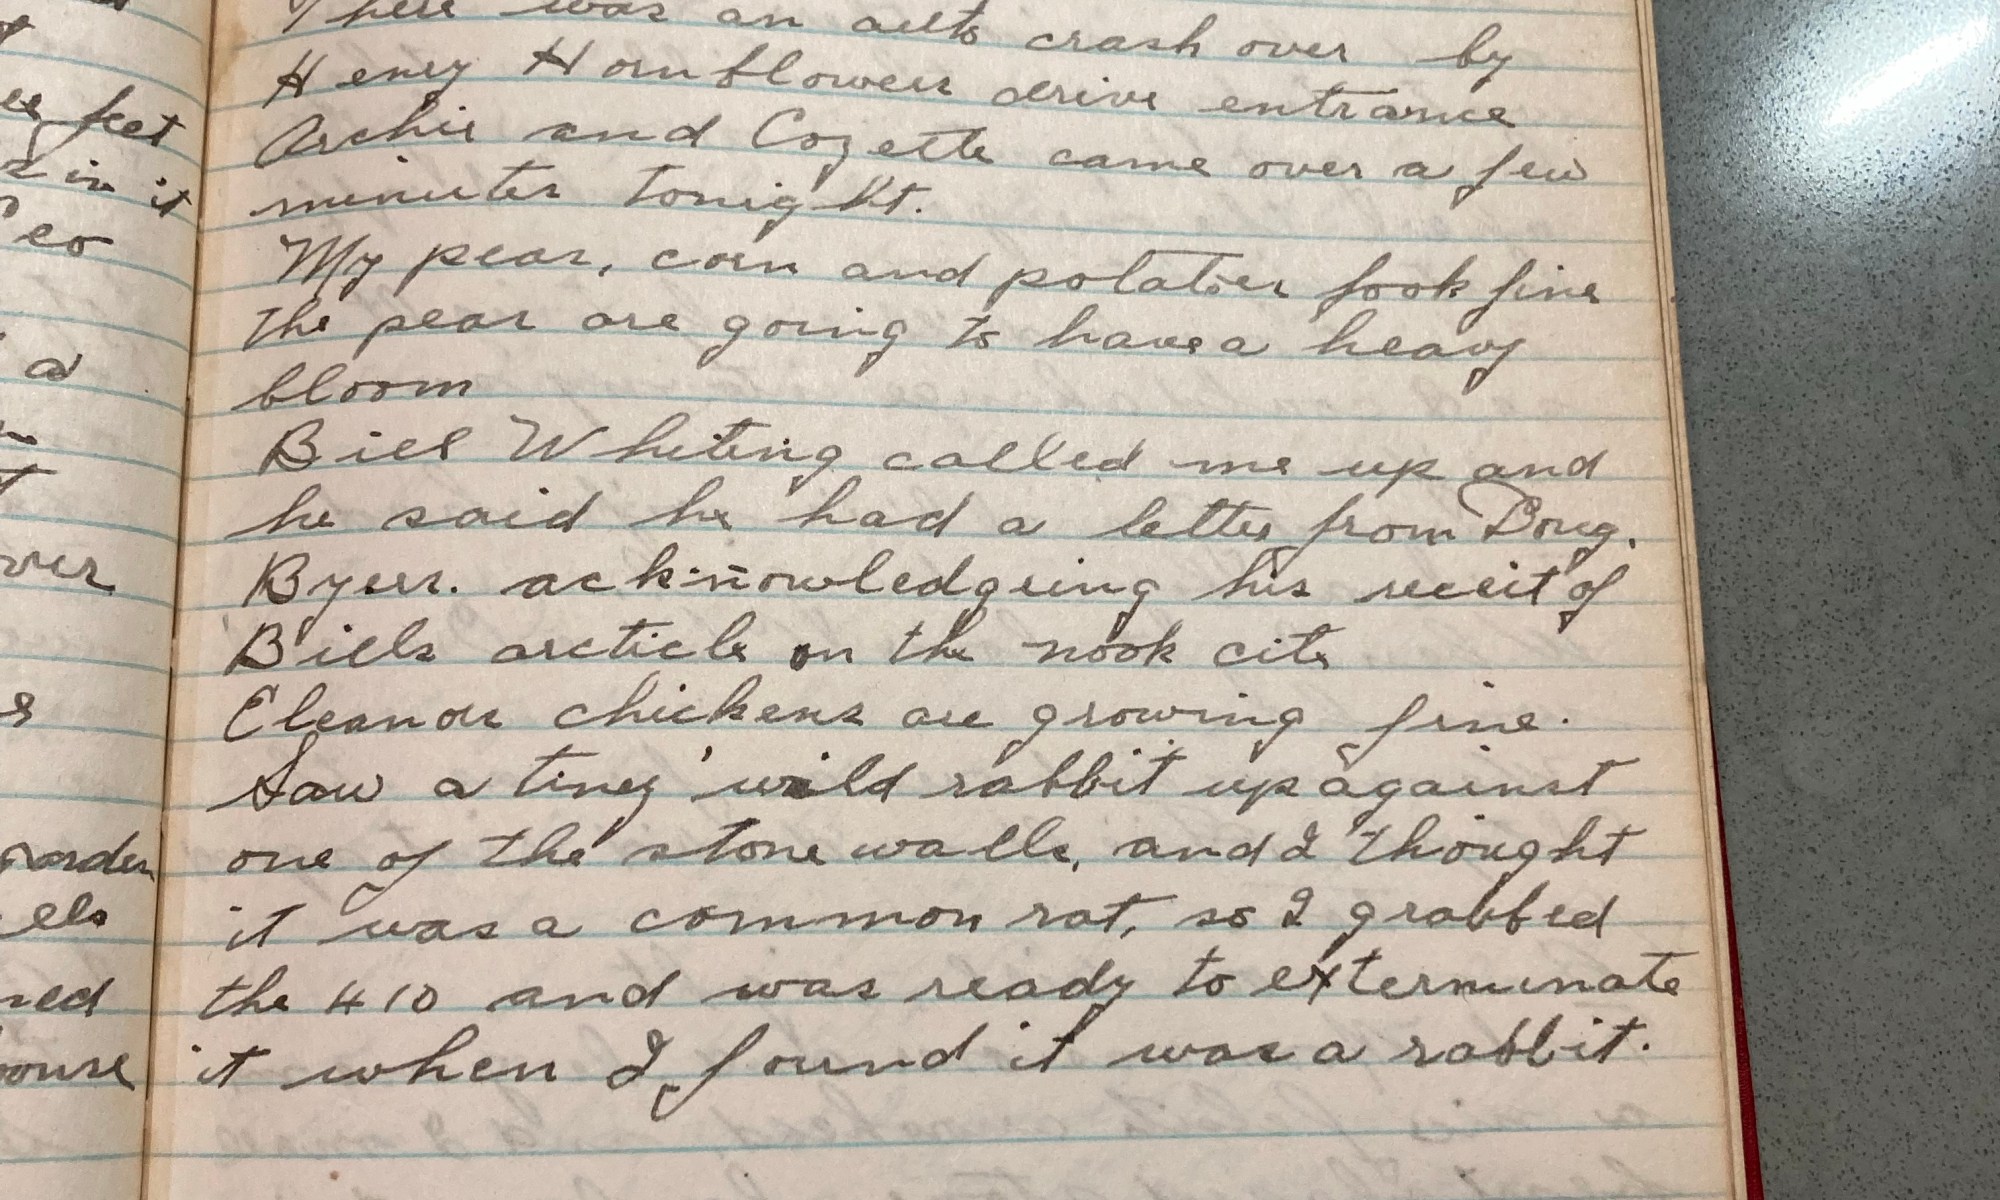 feet
in it
a
over
garden
ells
red
house
There was an auto crash over by
Henry Hornblower drive entrance
Archie and Cozette came over a few
minutes tonight.
My peas, corn and potatoes look fine
the peas are going to have a heavy
bloom
Bill Whiting called me up and
he said he had a letter from Doug.
Byers. acknowledgeing his receit of
Bills arcticle on the nook cite
Eleanor chickens are growing fine.
Saw a tiney wild rabbit up against
one of the stone walls, and I thought
it was a common rat, so I grabbed
the 410 and was ready to exterminate
it when I found it was a rabbit.